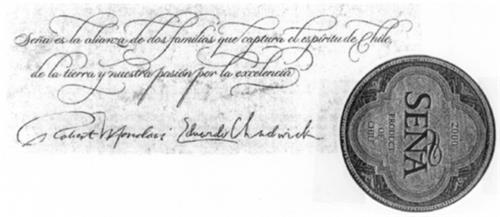 Seña es la alianza de dos familias que captura el espíritu de Chile,
de la tierra y nuestra pasión por la excelencia
Robert Mondavi Eduardo Chadwick
2000
SEÑA
PRODUCT
OF
CHILE